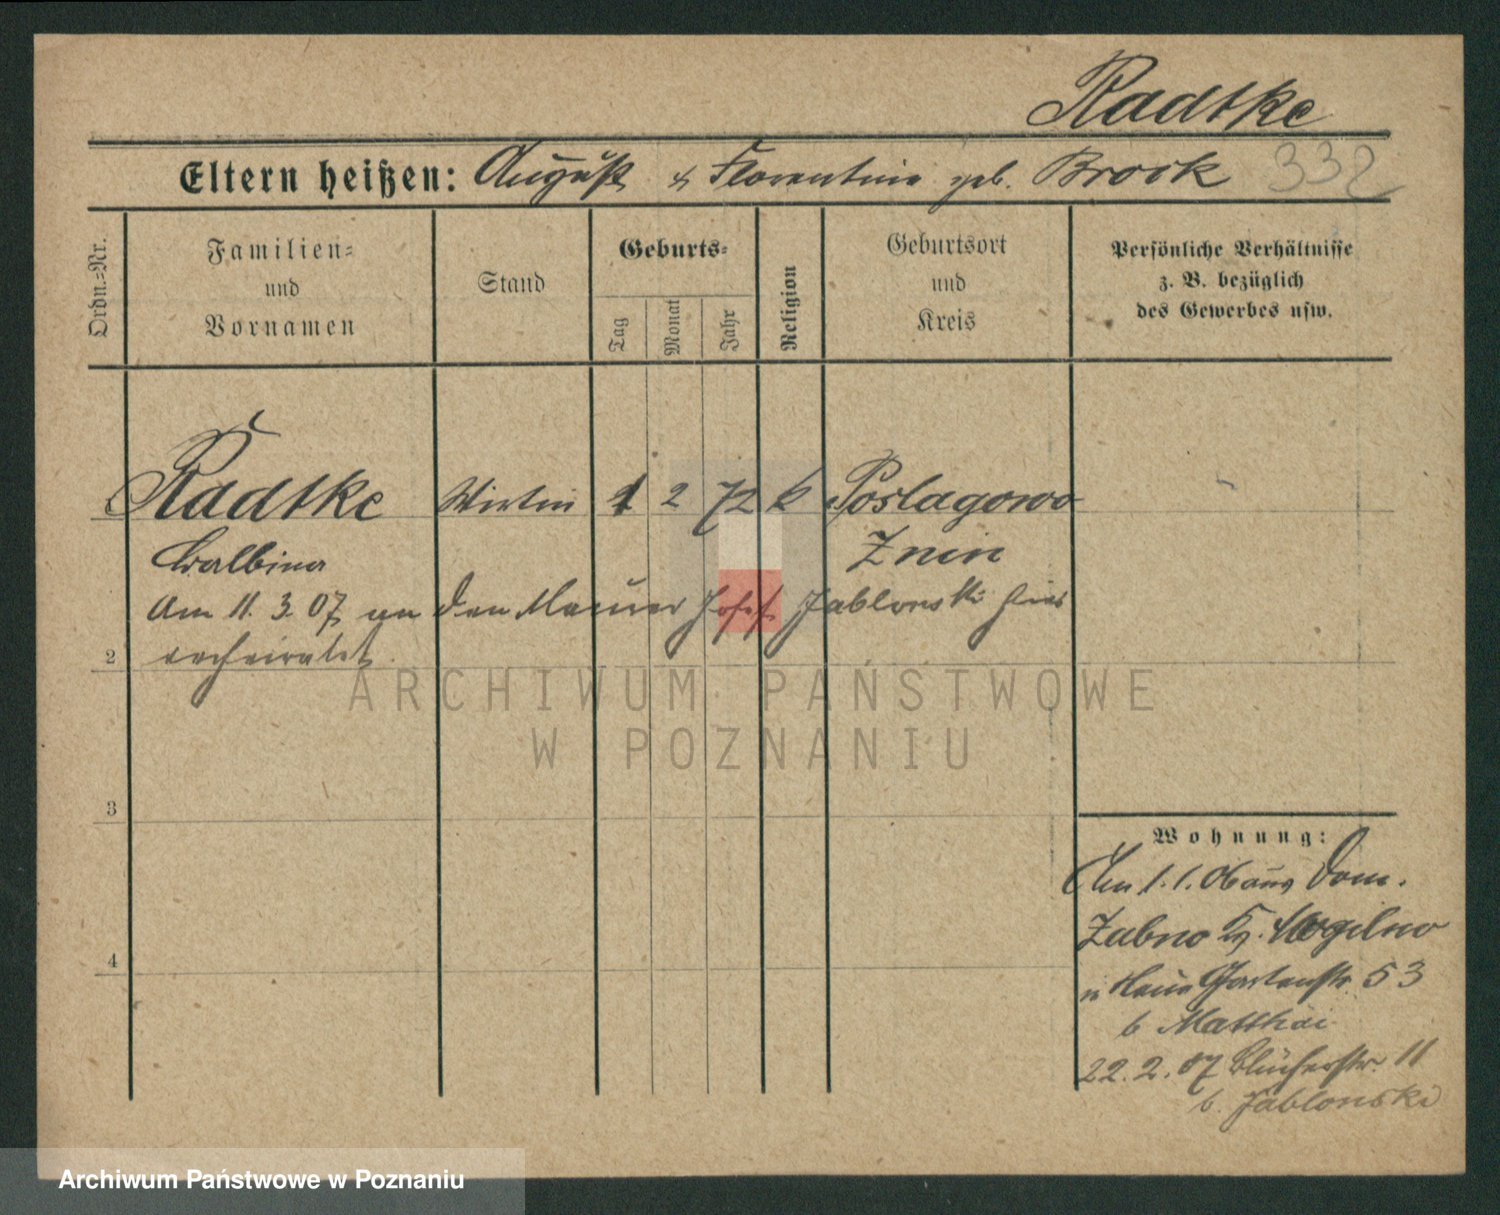 Radtke
Eltern heißen: August & Florentine geb. Brock 332
Ordn.=Nr.
Familien=
und
Vornamen
Stand
Geburts=
Tag
Monat
Jahr
Religion
Geburtsort
und
Kreis
Persönliche Verhältnisse
z. B. bezüglich
des Gewerbes usw.
Radtke Wirtin 1 2 72 k Poslagowo
Balbina Znin
Am 11. 3. 07 an den Maurer Josef Jablonski hier
2 verheiratet
3
4
Wohnung:
Am 1. 1. 06 aus Dom.
Zabno Kr. Mogilno
n Gartenstr. 53
b Matthäi
22. 2. 07 Blücherstr. 11
b. Jablonski
ARCHIWUM PAŃSTWOWE
W POZNANIU
Archiwum Państwowe w Poznaniu